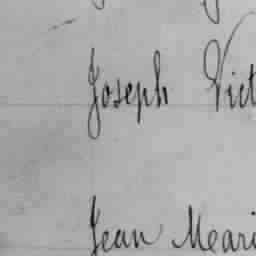 Joseph Vict
Jean Mari